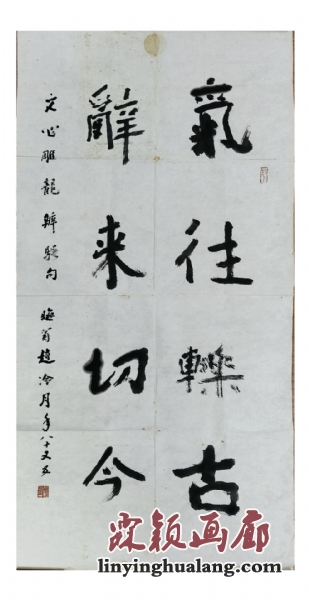 氣往轢古
辭来切今
文心雕龍辨騷句
晦翁趙冷月年八十又五
霖颖画廊
linyinghualang.com